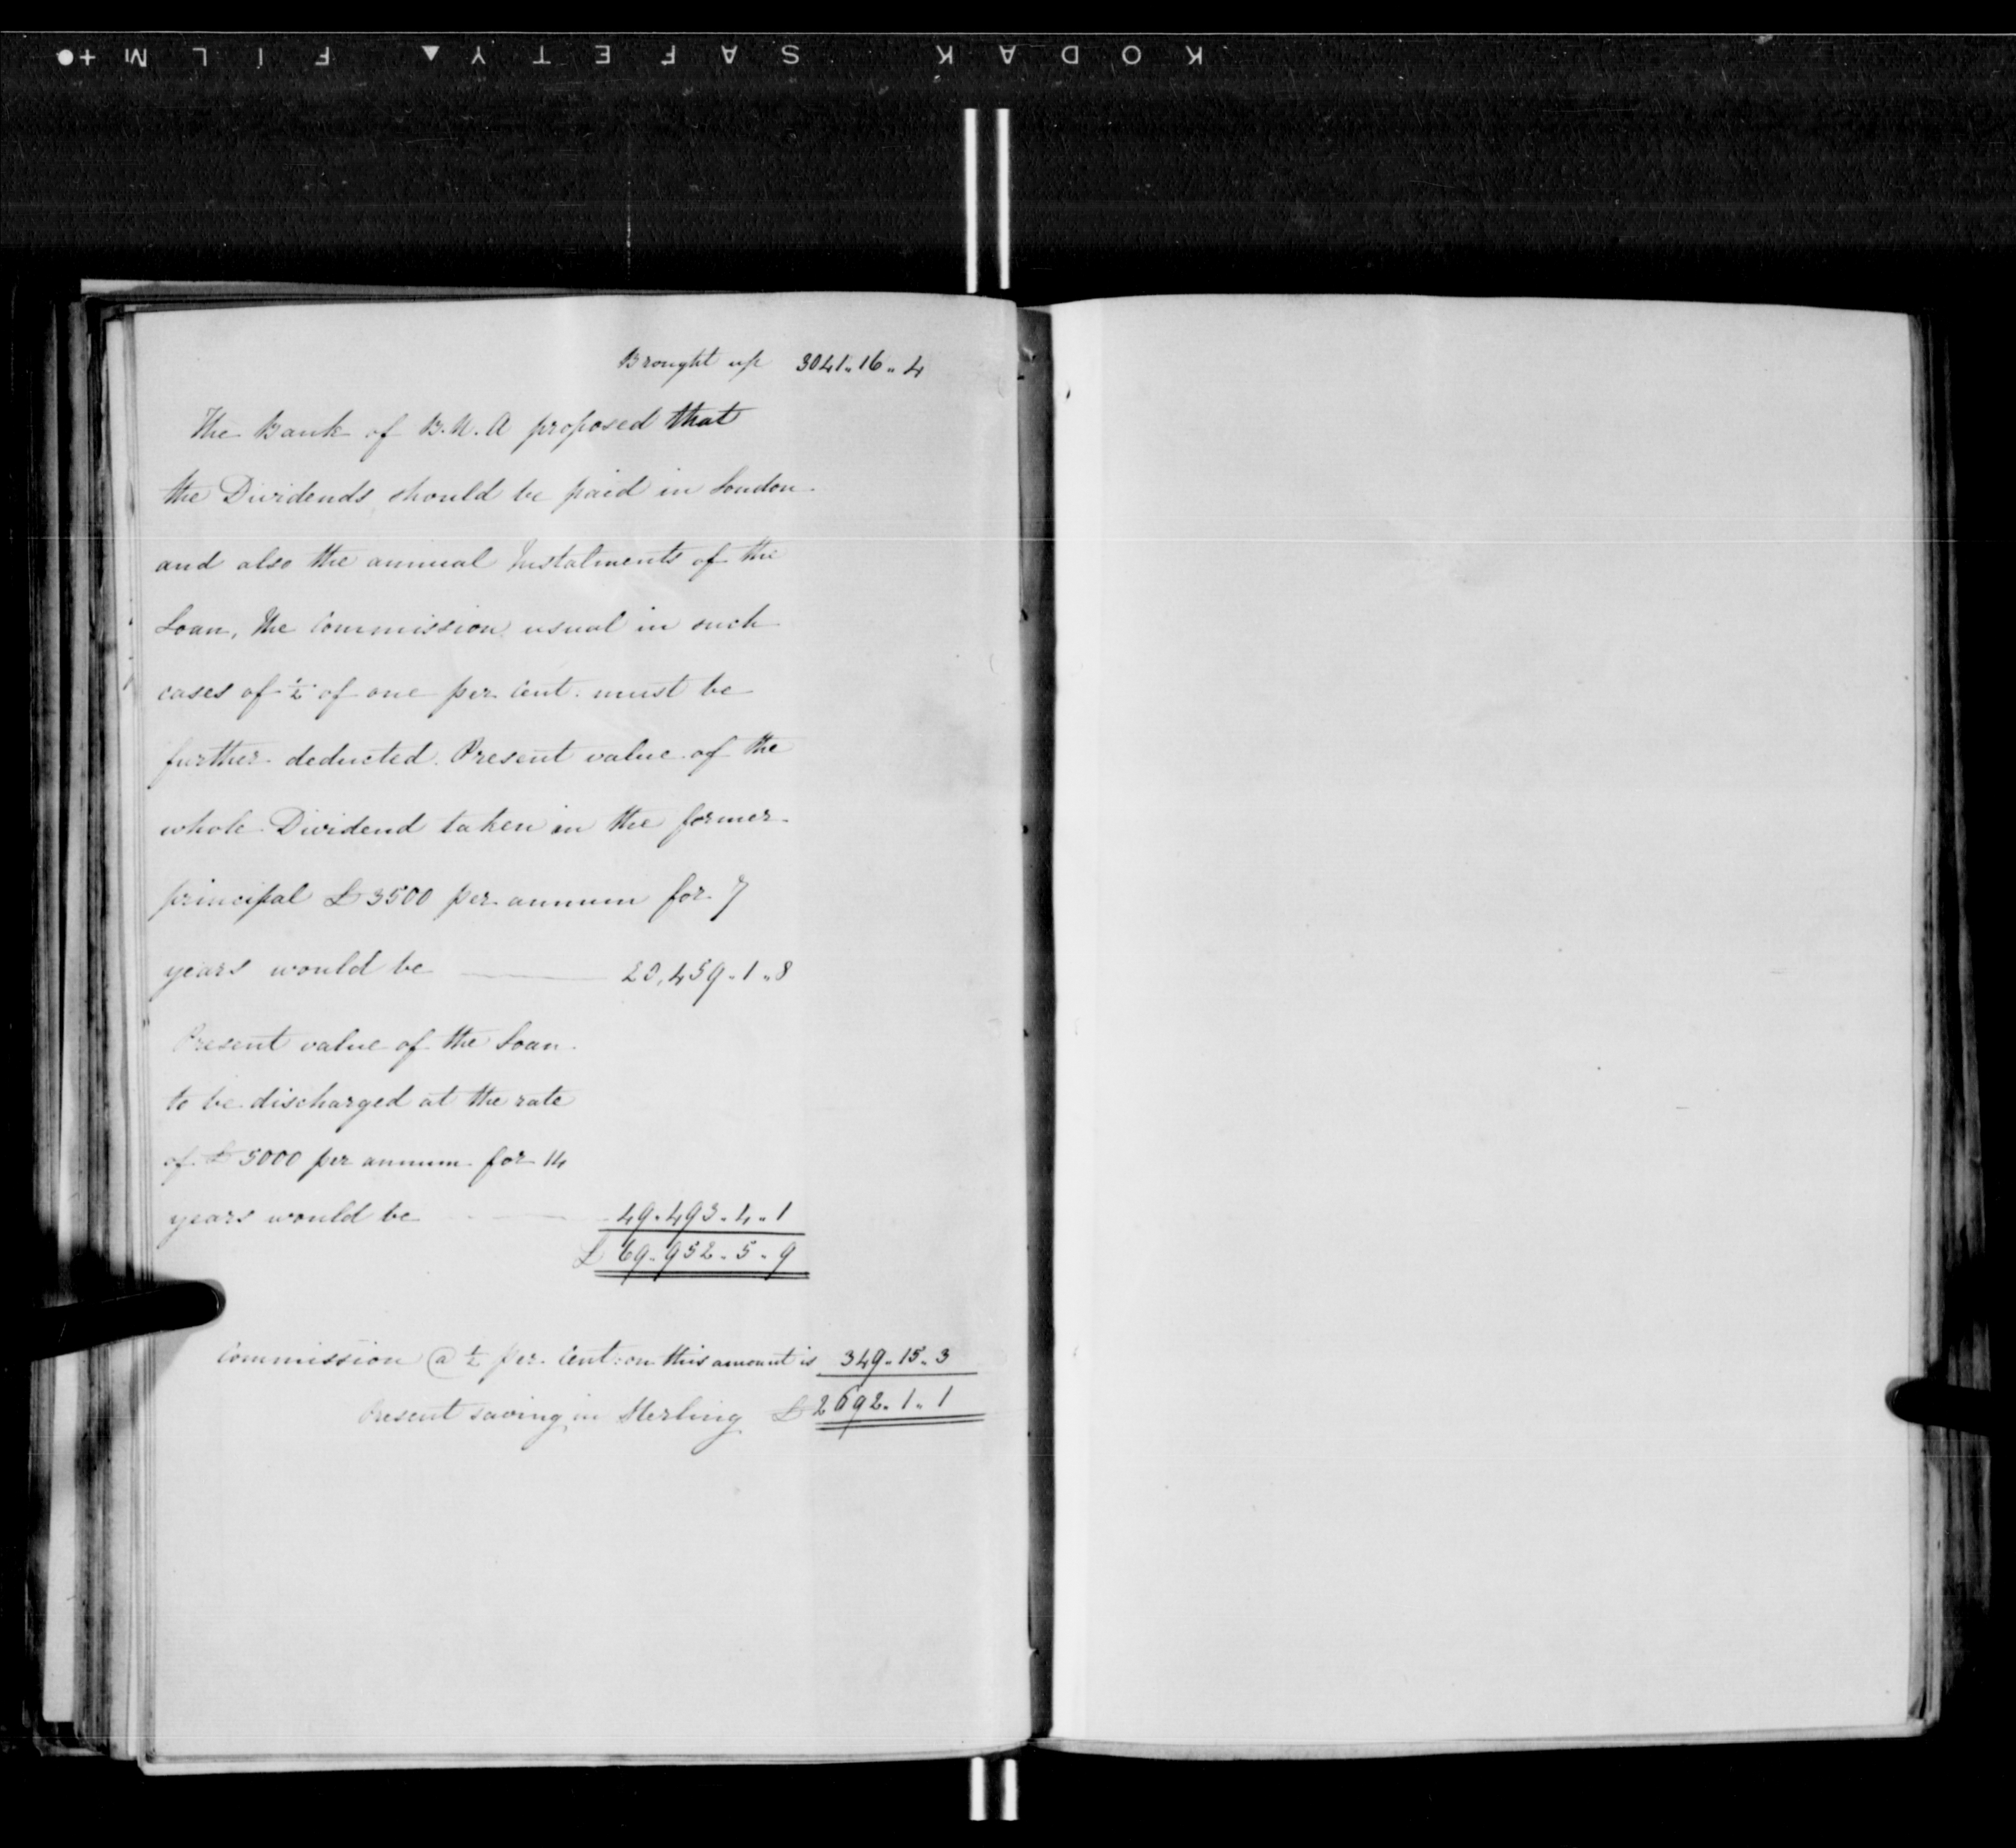 KODAK SAFETY FILM
Brought up 3041.. 16.. 4
The Bank of B. N. A proposed that
the Dividends should be paid in London
and also the annual Instalments of the
Loan, the Commission usual in such
cases of ½ of one per Cent. must be
further deducted. Present value of the
whole Dividend taken in the former
principal £3500 per annum for 7
years would be 20,459.. 1.. 8
Present value of the Loan
to be discharged at the rate
of £5000 per annum for 14
years would be 49.493.. 4.. 1
£ 69.952.. 5.. 9
Commission @ ½ per Cent: on this amount is 349.. 15.. 3
Present saving in Sterling £2692.. 1.. 1